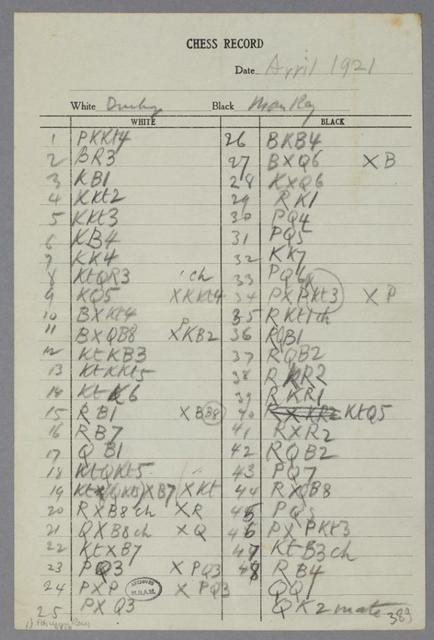 CHESS RECORD
Date April 1921
White Black Man Ray
WHITE BLACK
1 PKKt4 26 BKB4
2 BR3 27 BXQ6 XB
3 KB1 28 KXQ6
4 KKt2 29 RK1
5 KKt3 30 PQ4
6 KB4 31 PQ5
7 KK4 32 KK7
8 KtQR3 ch 33 PQ6
9 KQ5 XKKt4 34 PXPKt3 XP
10 BXKt4 35 RKt1ch
11 BXQB8 XKB2 36 RQB1
12 KtKB3 37 RQB2
13 KtKKt5 38 RKR2
14 KtK6 39 RKR1
15 RB1 XB 40 KtQ5
16 RB7 41 RXR2
17 QB1 42 RQB2
18 KtQKt5 43 PQ7
19 XB7 XKt 44 RXQB8
20 RXB8ch XR 45 PQ8
21 QXB8ch XQ 46 PXPKt3
22 KtXB7 47 KtB3ch
23 PQ3 XPQ3 48 RB4
24 PXP XPQ3 QQ1
25 PXQ3 QK2 mate
389